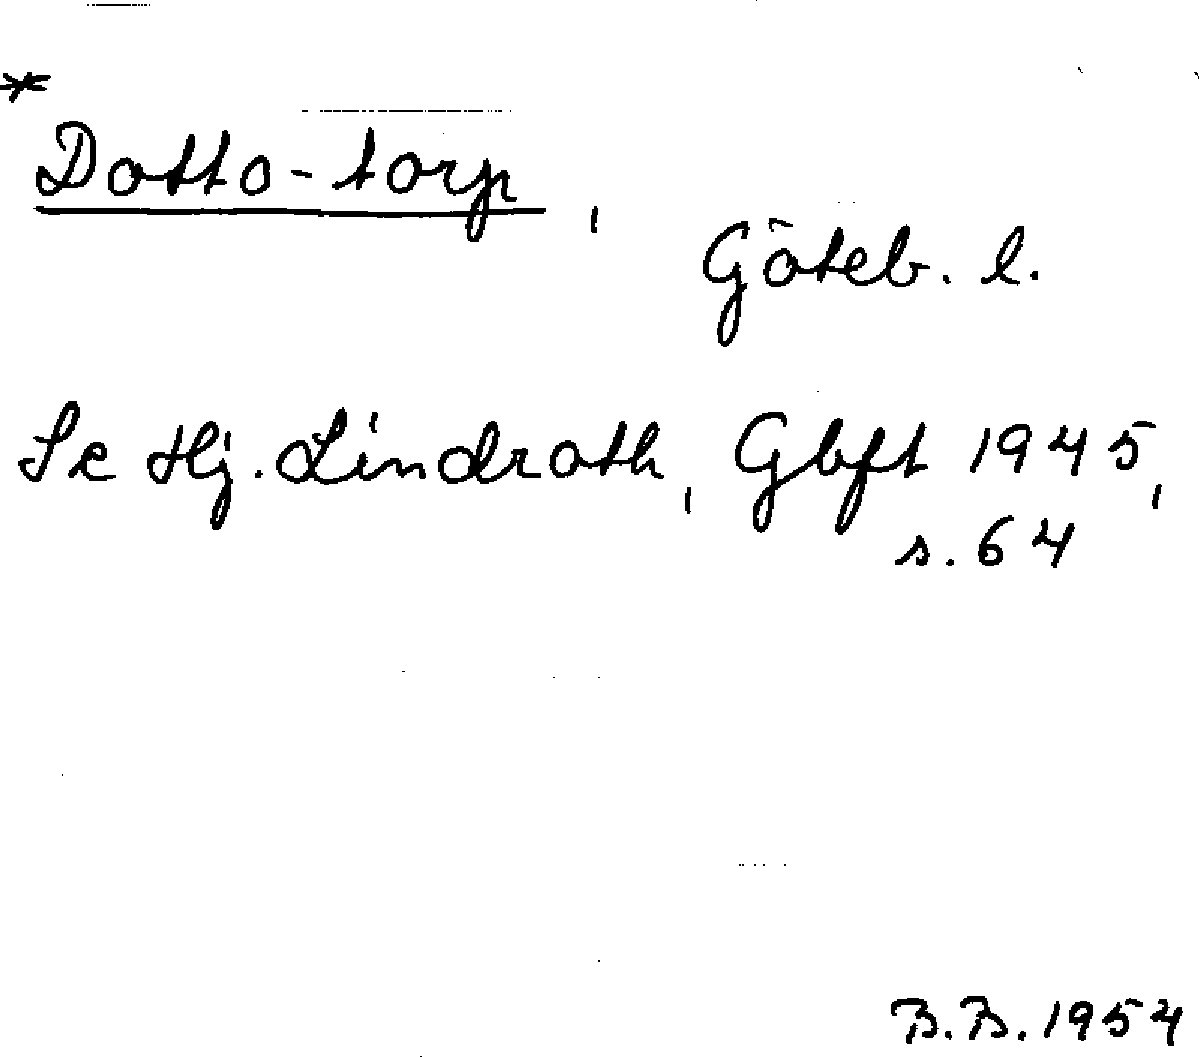 *
Dotto-torp,
Göteb. l.
Se Hj. Lindroth, Gbft 1945,
s. 64
B.B. 1954